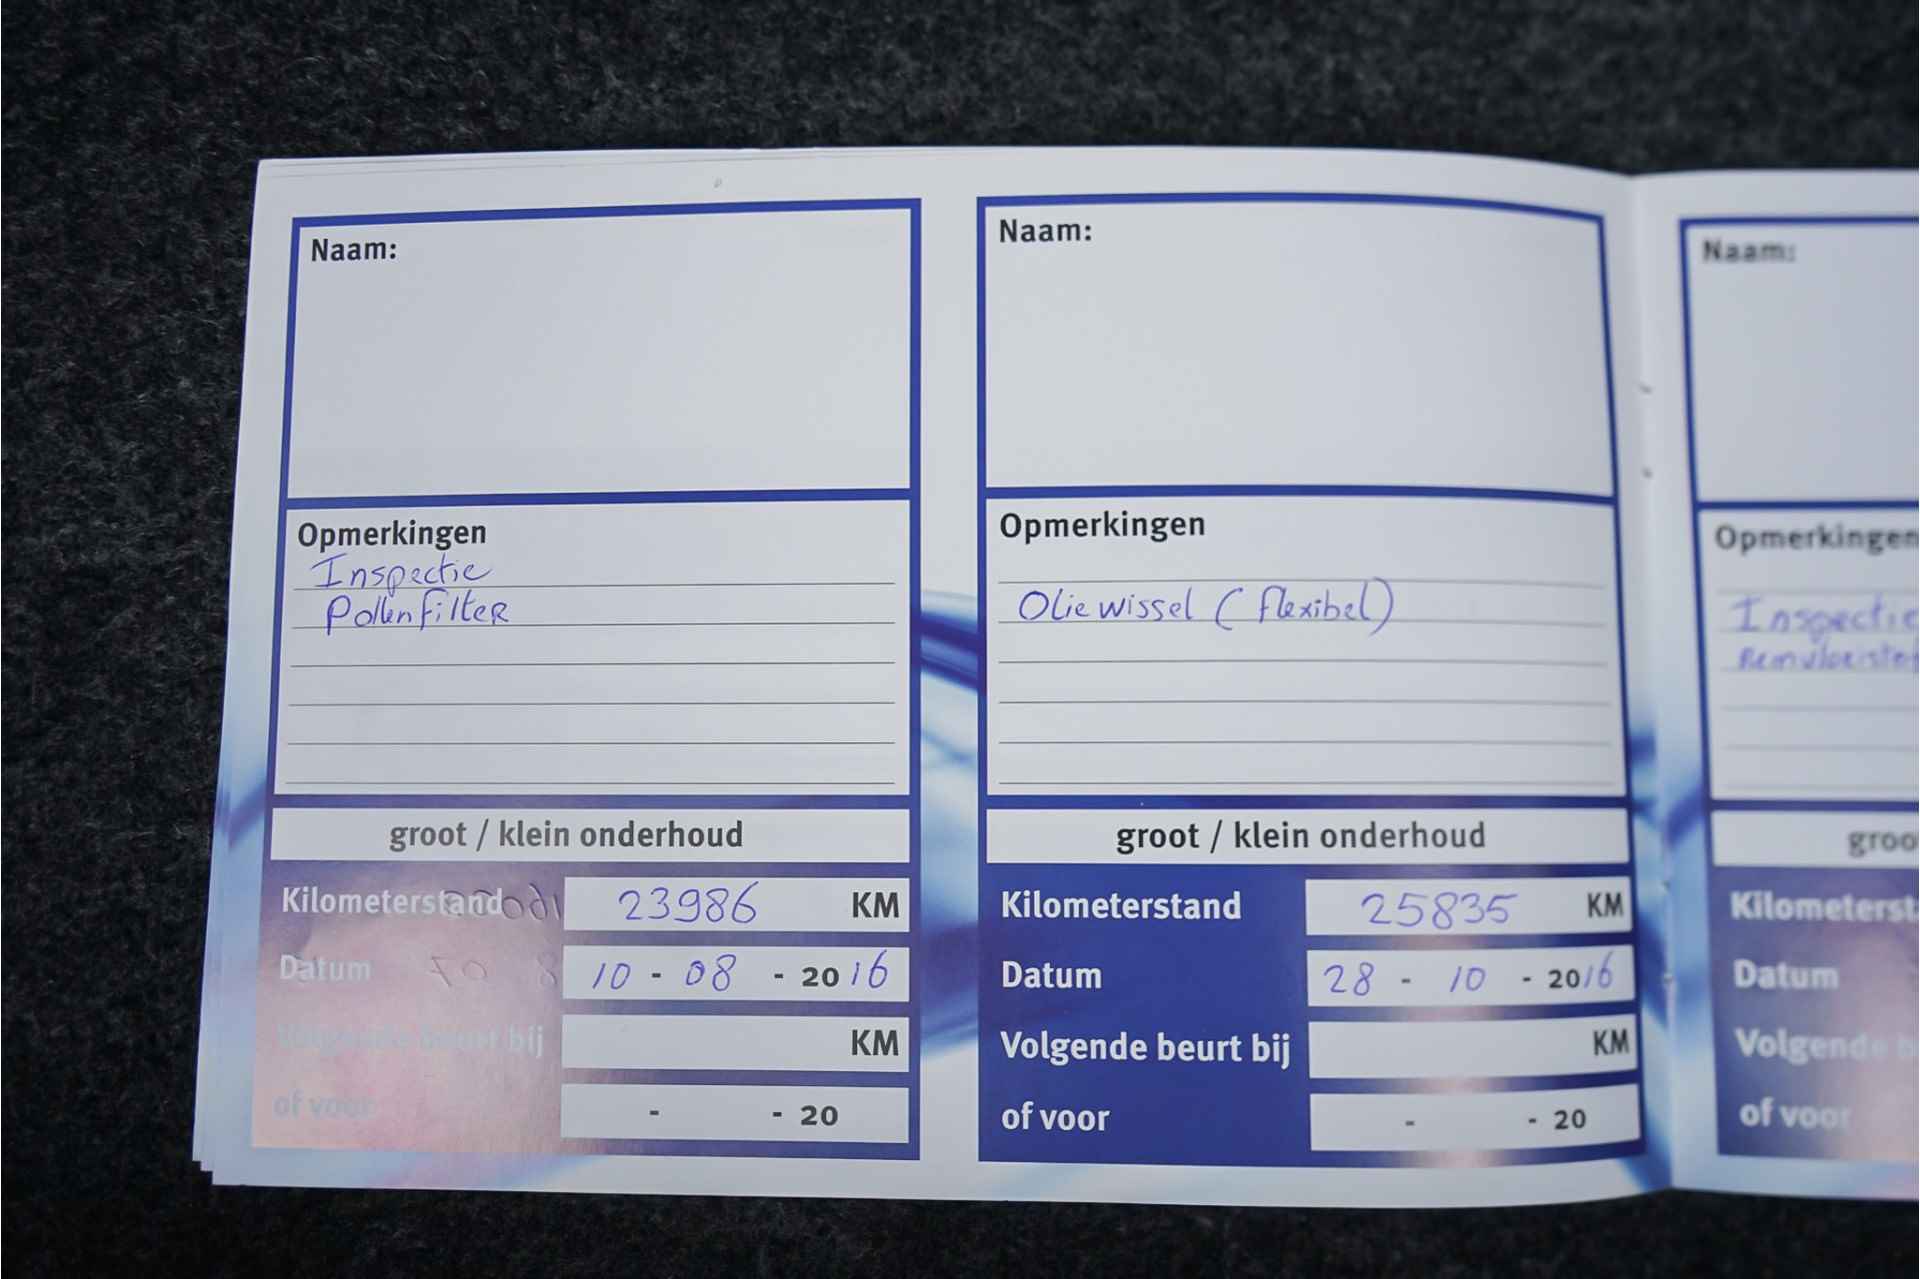 Naam:
Opmerkingen
Inspectie
Pollenfilter
groot / klein onderhoud
Kilometerstand 23986 KM
Datum 10 - 08 - 2016
Volgende beurt bij KM
of voor - - 20
Naam:
Opmerkingen
Olie wissel (flexibel)
groot / klein onderhoud
Kilometerstand 25835 KM
Datum 28 - 10 - 2016
Volgende beurt bij KM
of voor - - 20
Naam:
Opmerkingen
Inspectie
groo
Kilometerst
Datum
Volgende b
of voor